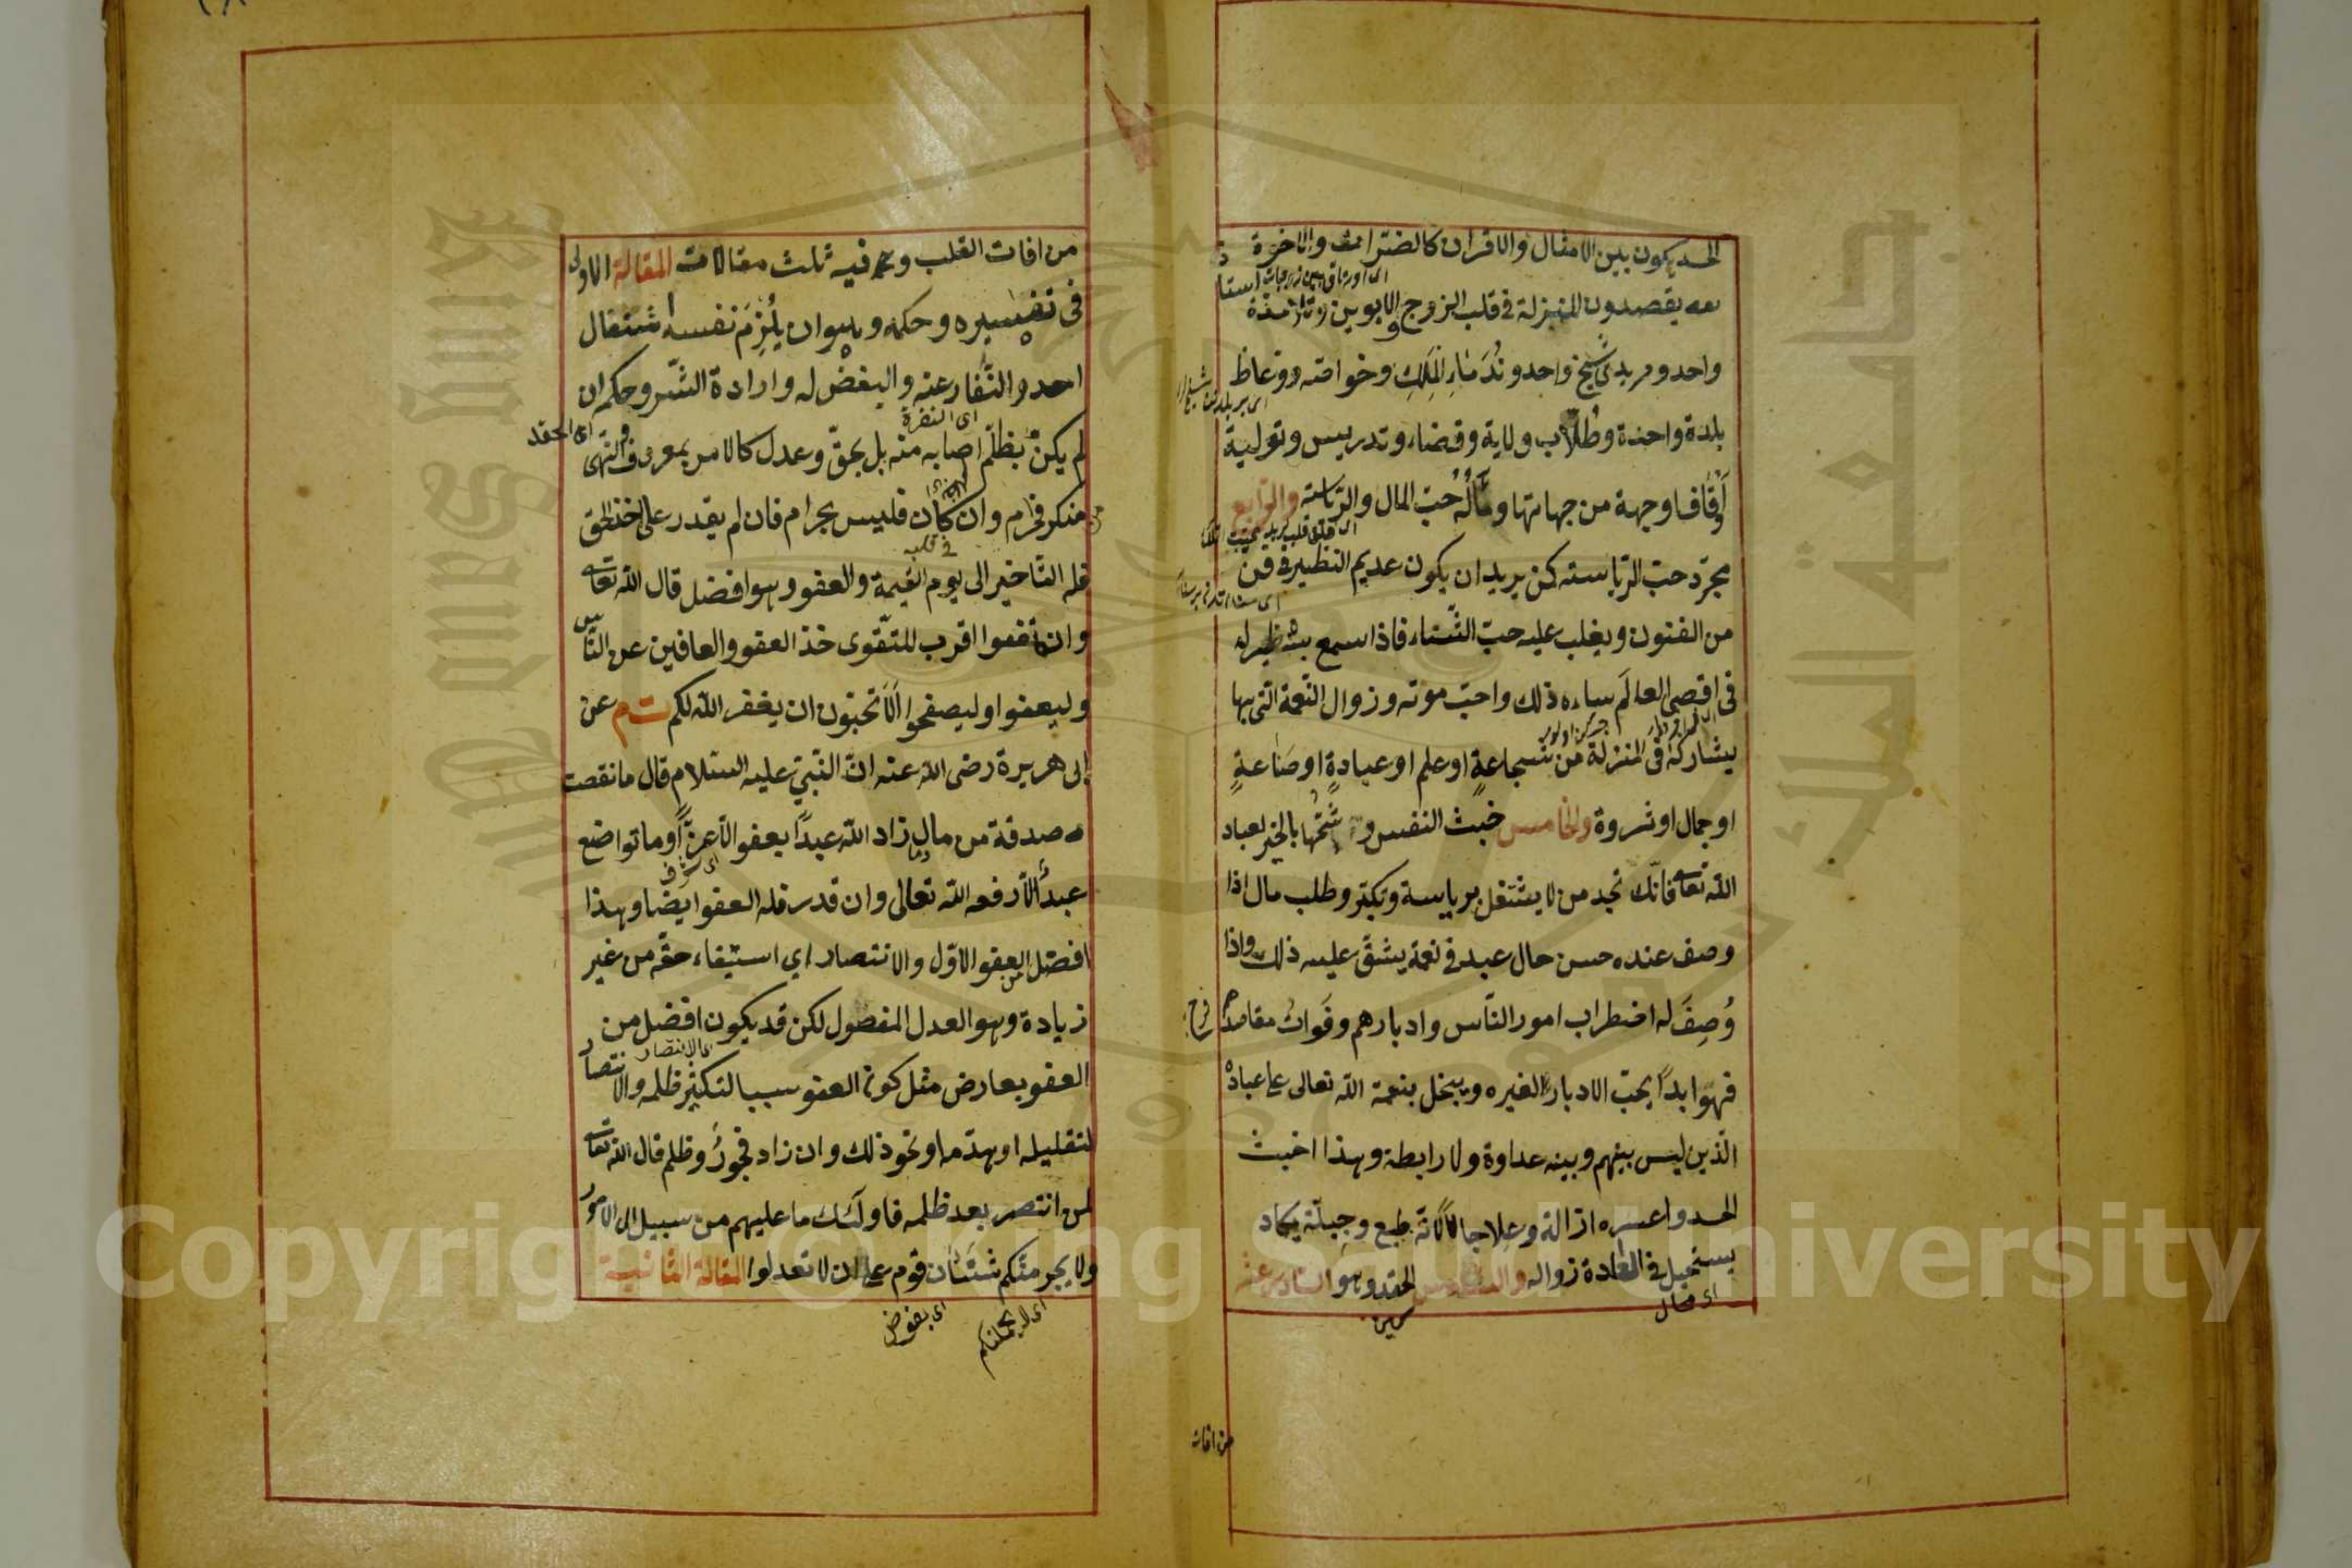 الحسد يكون بين الامثال والاقران كالضرات والاخوة
معه يقصدون المنزلة فى قلب الزوج والابوين وتلامذة استاد
واحد ومريدى شيخ واحد وندماء الملك وخواصه ووعاظ
بلدة واحدة وطلاب ولاية وقضاء وتدريس وتولية
أوقاف اوجهة من جهاتها ومآله حب المال والرياسة والرابع
مجرد حب الرياسة كمن يريد ان يكون عديم النظير فى فن
من الفنون ويغلب عليه حب الثناء فاذا سمع بنظير له
فى اقصى العالم ساءه ذلك واحب موته وزوال النعمة التى بها
يشاركه فى المنزلة من شجاعة او علم او عبادة او صناعة
او جمال او ثروة والخامس خبث النفس وشحها بالخير لعباد
الله تعالى فانك تجد من لا يشتغل برياسة وتكبر وطلب مال اذا
وصف عنده حسن حال عبد فى نعمة يشق عليه ذلك واذا
وصف له اضطراب امور الناس وادبارهم وفوات مقاصدهم فرح
فهو ابدا يحب الادبار لغيره ويبخل بنعمة الله تعالى على عباده
الذين ليس بينهم وبينه عداوة ولا رابطة وهذا اخبث
الحسد واعسره ازالة وعلاجا لانه طبع وجبلة يكاد
يستحيل فى العادة زواله الحقد وهو السادس عشر
اى محال
من افات
من افات القلب وفيه ثلث مقالات المقالة الاولى
فى تفسيره وحكمه وهو ان يلزم نفسه اشتغال
احد والنفار عنه والبغض له وارادة الشر وحكمه ان
اى النفرة
اى الحقد
لم يكن بظلم اصابه منه بل بحق وعدل كالامر بمعروف والنهى
عن منكر فحرام وان كان فليس بحرام فان لم يقدر على اخذ الحق
فى قلبه
فله التاخير الى يوم القيمة والعفو وهو افضل قال الله تعالى
وان تعفوا اقرب للتقوى خذ العفو والعافين عن الناس
وليعفوا وليصفحوا الا تحبون ان يغفر الله لكم ت م عن
ابى هريرة رضى الله عنه ان النبى عليه السلام قال ما نقصت
صدقة من مال وما زاد الله عبدا بعفو الا عزا وما تواضع
عبد الا رفعه الله تعالى وان قدر فله العفو ايضا وهذا
افضل من العفو الاول والانتصار اى استيفاء حقه من غير
زيادة وهو العدل المفضول لكن قد يكون افضل من
اى الانتصار
العفو بعارض مثل كون العفو سببا لتكثير ظلمه والانتصار
لتقليله او هدمه او نحو ذلك وان زاد فجور وظلم قال الله تعالى
لمن انتصر بعد ظلمه فاولئك ما عليهم من سبيل الى الامور
ولا يجرمنكم شنئان قوم على ان لا تعدلوا المقالة الثانية
اى لا يحملنكم
اى بغوض
Copyright © King Saud University